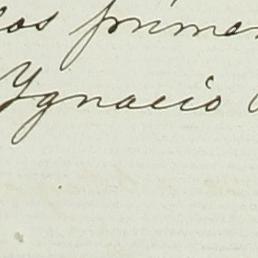 los primer
Ygnacio